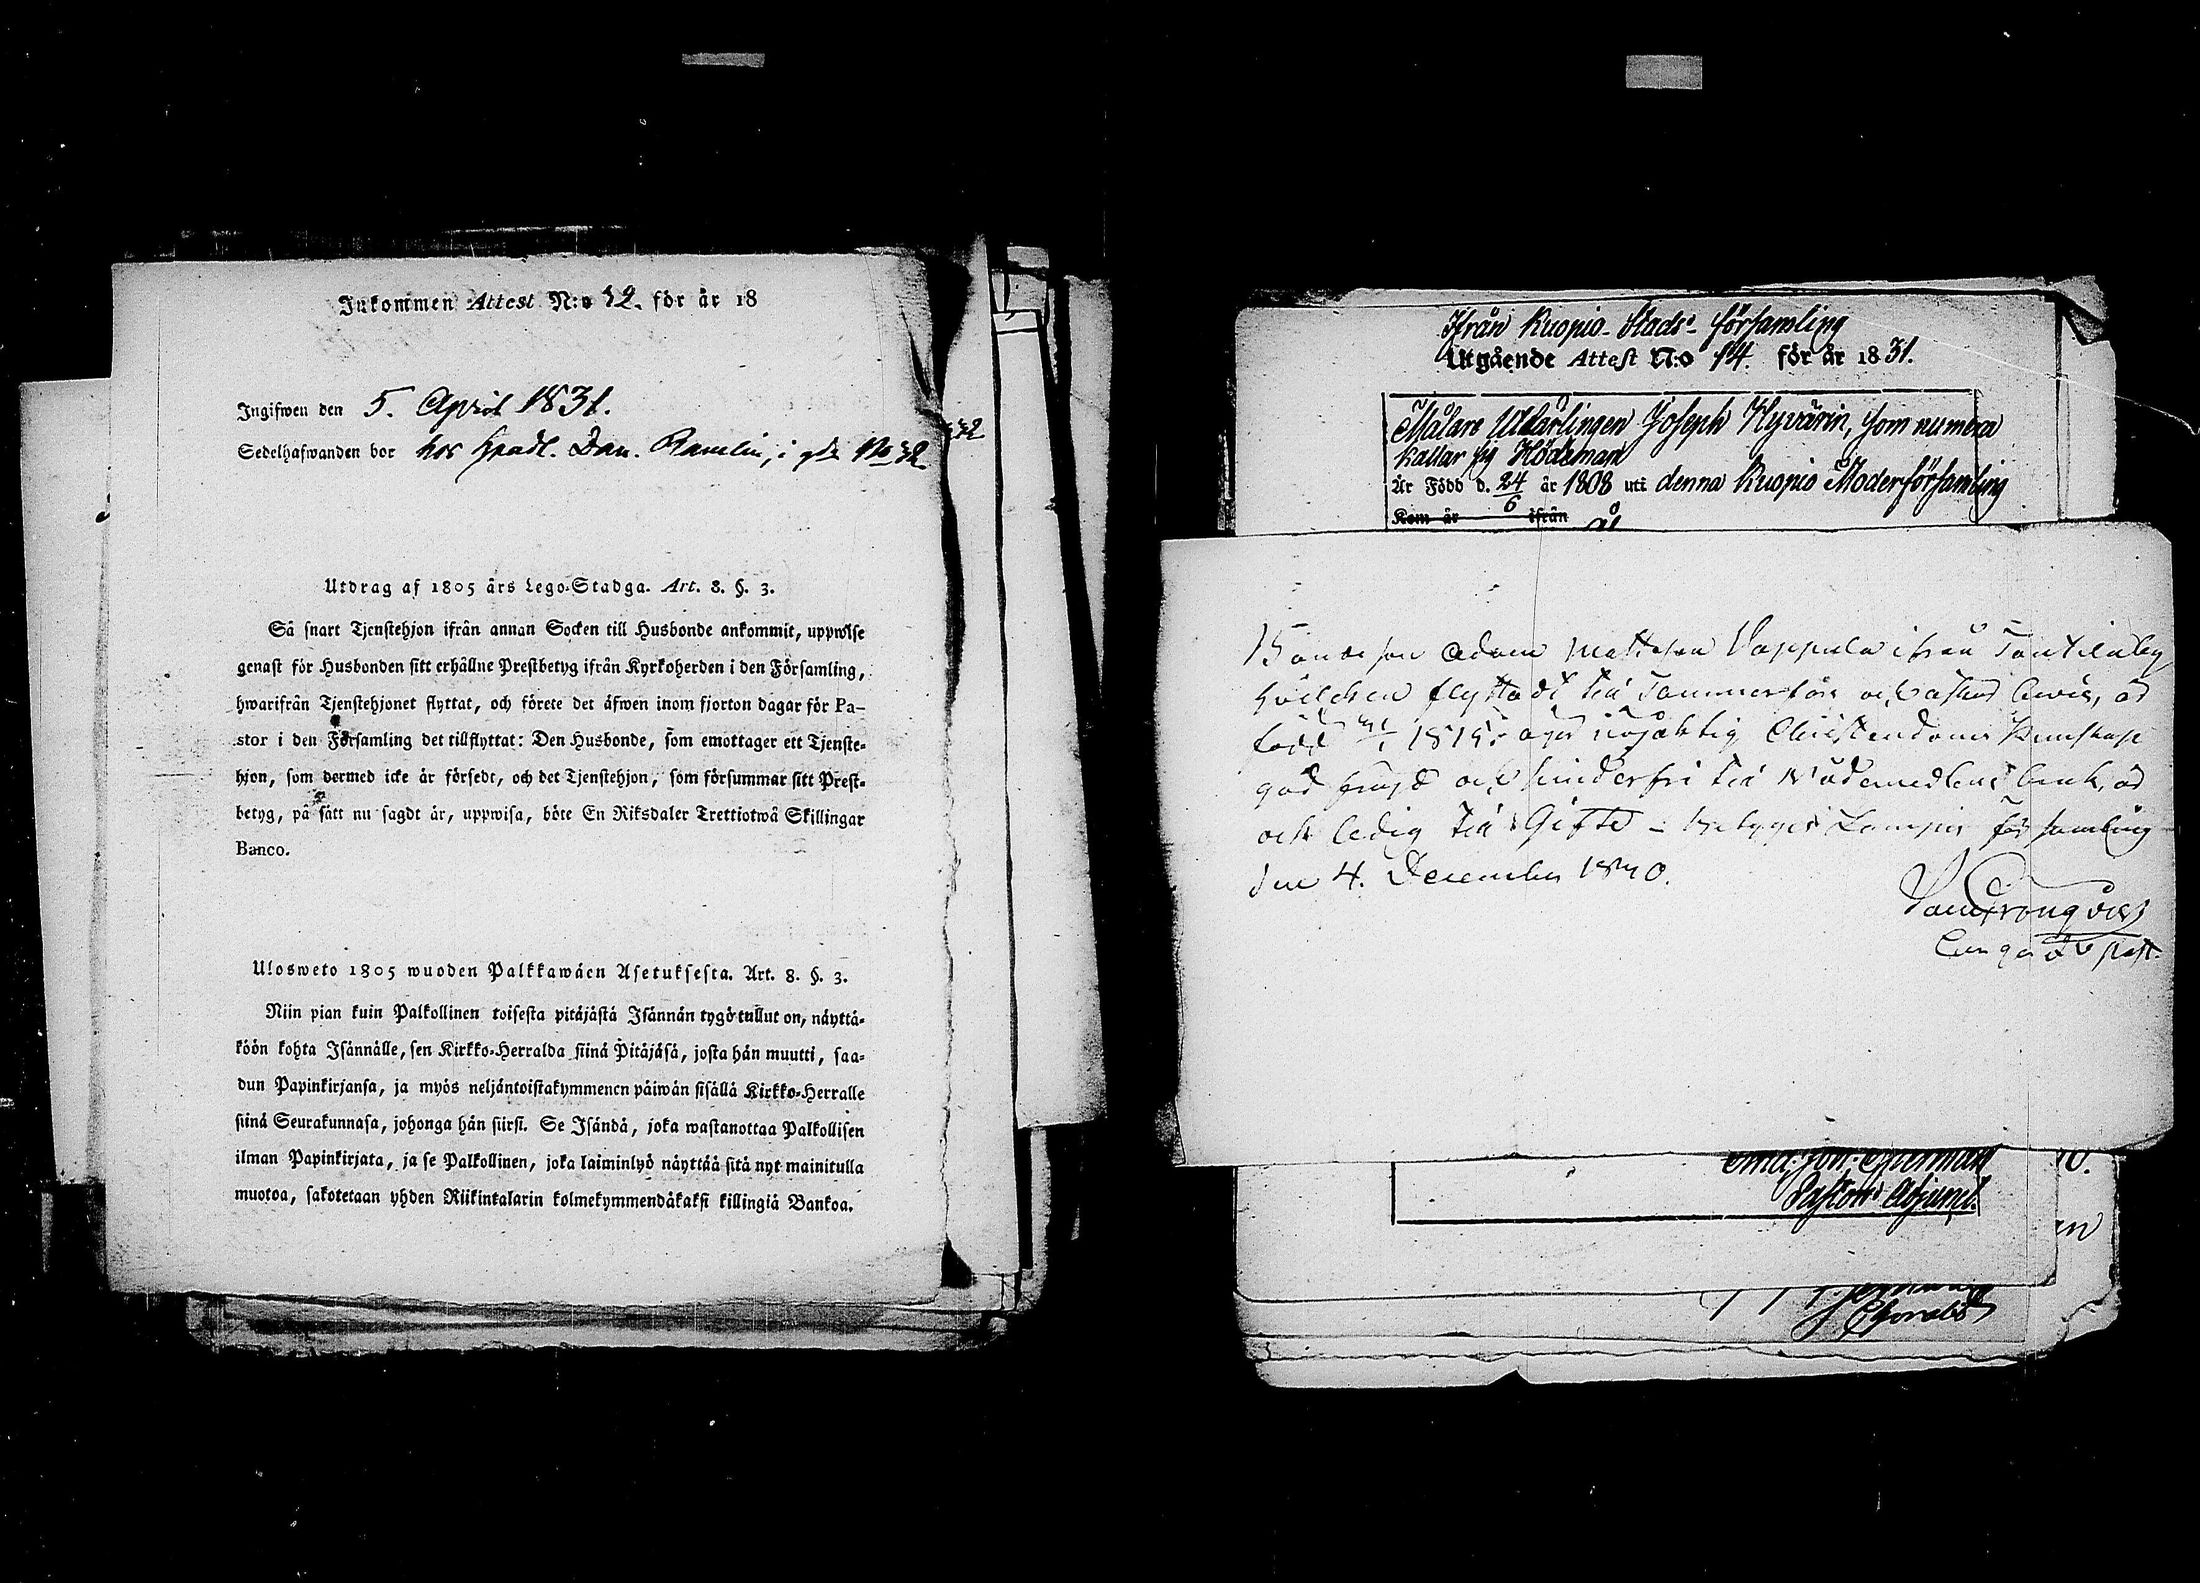 Inkommen Attest N:o 52. för år 18
Ingifwen den 5. April 1831.
Sedelhafwanden bor hos Handl. Dan. Ramlin, i gden No 32.
Utdrag af 1805 års Lego-Stadga. Art. 8. §. 3.
Så snart Tjenstehjon ifrån annan Socken till Husbonde ankommit, uppwise
genast för Husbonden sitt erhållne Prestbetyg ifrån Kyrkoherden i den Församling,
hwarifrån Tjenstehjonet flyttat, och förete det äfwen inom fjorton dagar för Pa-
stor i den Församling det tillflyttat: Den Husbonde, som emottager ett Tjenste-
hjon, som dermed icke är försedt, och det Tjenstehjon, som försummar sitt Prest-
betyg, på sätt nu sagdt är, uppwisa, böte En Riksdaler Trettiotwå Skillingar
Banco.
Ulosweto 1805 wuoden Palkkawäen Asetuksesta. Art. 8. §. 3.
Niin pian kuin Palkollinen toisesta pitäjästä Isännän tygö tullut on, näyttä-
köön kohta Isännälle, sen Kirkko-Herralda siinä Pitäjäsä, josta hän muutti, saa-
dun Papinkirjansa, ja myös neljäntoistakymmenen päiwän sisällä Kirkko-Herralle
siinä Seurakunnasa, johonga hän siirsi. Se Isändä, joka wastanottaa Palkollisen
ilman Papinkirjata, ja se Palkollinen, joka laiminlyö näyttää sitä nyt mainitulla
muotoa, sakotetaan yhden Riikintalarin kolmekymmendäkaksi killingiä Bankoa.
Ifrån Kuopio Stads-församling
Utgående Attest N:o 14. för år 1831.
Målare Utlärlingen Joseph Hyvärin, som numera
kallar sig Hödeman
Är Född d. 24/6 år 1808 uti denna Kuopio Moderförsamling
Kom år ifrån
Bondeson Adam Mattsson Vappula ifrån by
hvilken flyttade till Tammerfors och åstad bevis, är
född 1/1 1815. äger nöjaktig Christendoms Kunskap
god frejd och hinderfri till Nådemedlens bruk, är
och ledig till Gifte - betygar Lampis församling
den 4. December 1840.
Cronqvist
Pastors Adjunct.